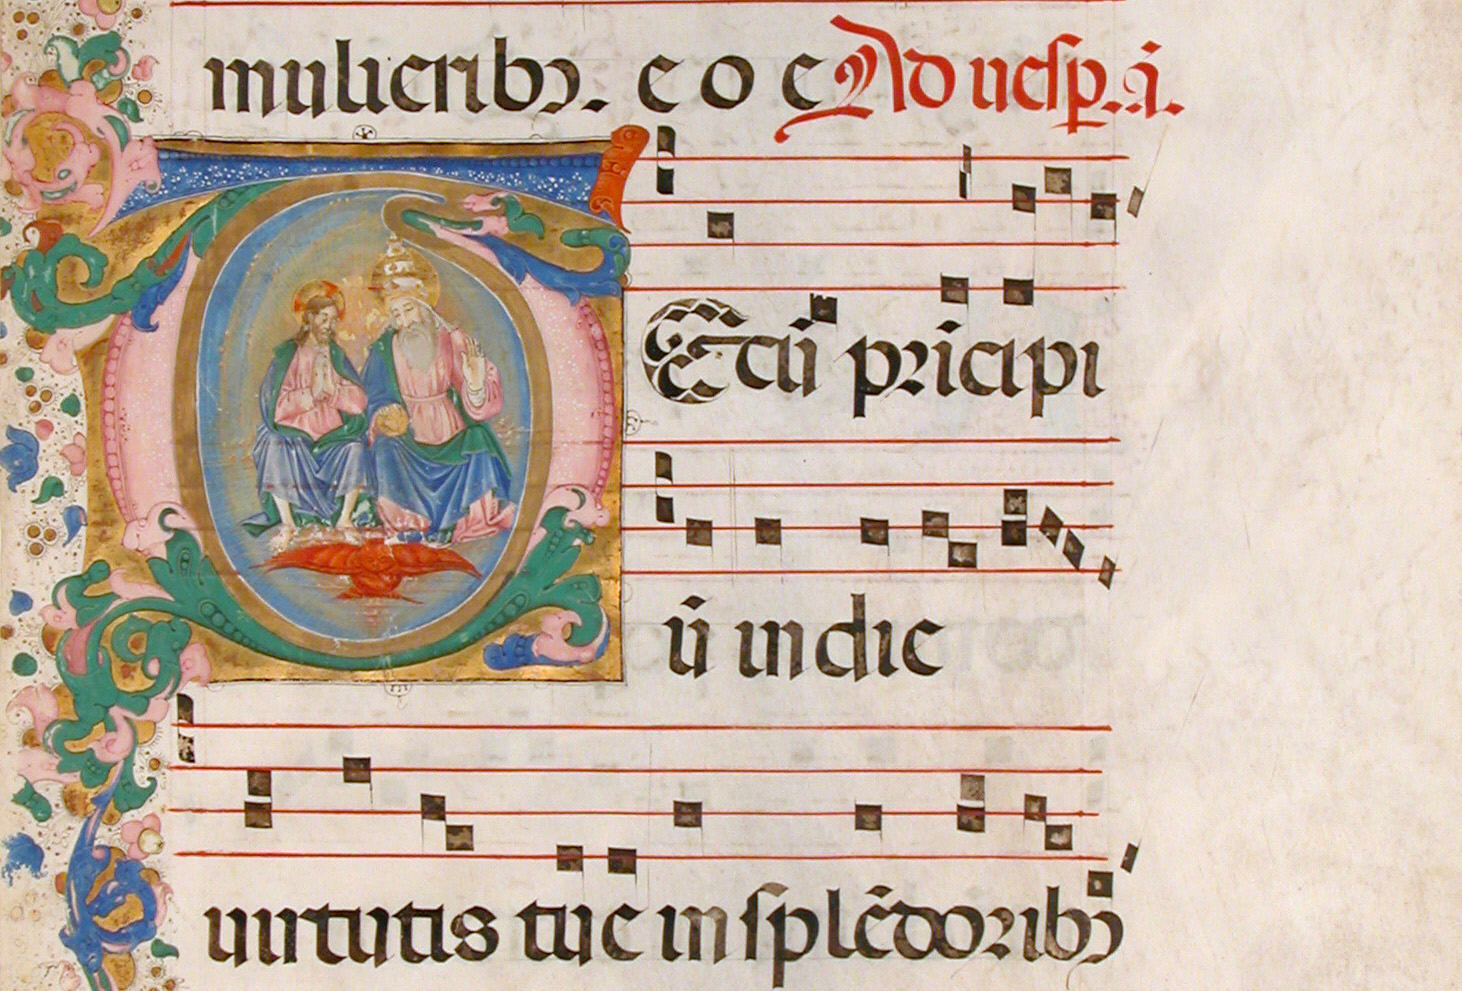 mulieribꝫ. e o e Ad uesp̄. a͞.
TEcū pri̅cipi
ū in die
uirtutis tue in splēdoribꝫ